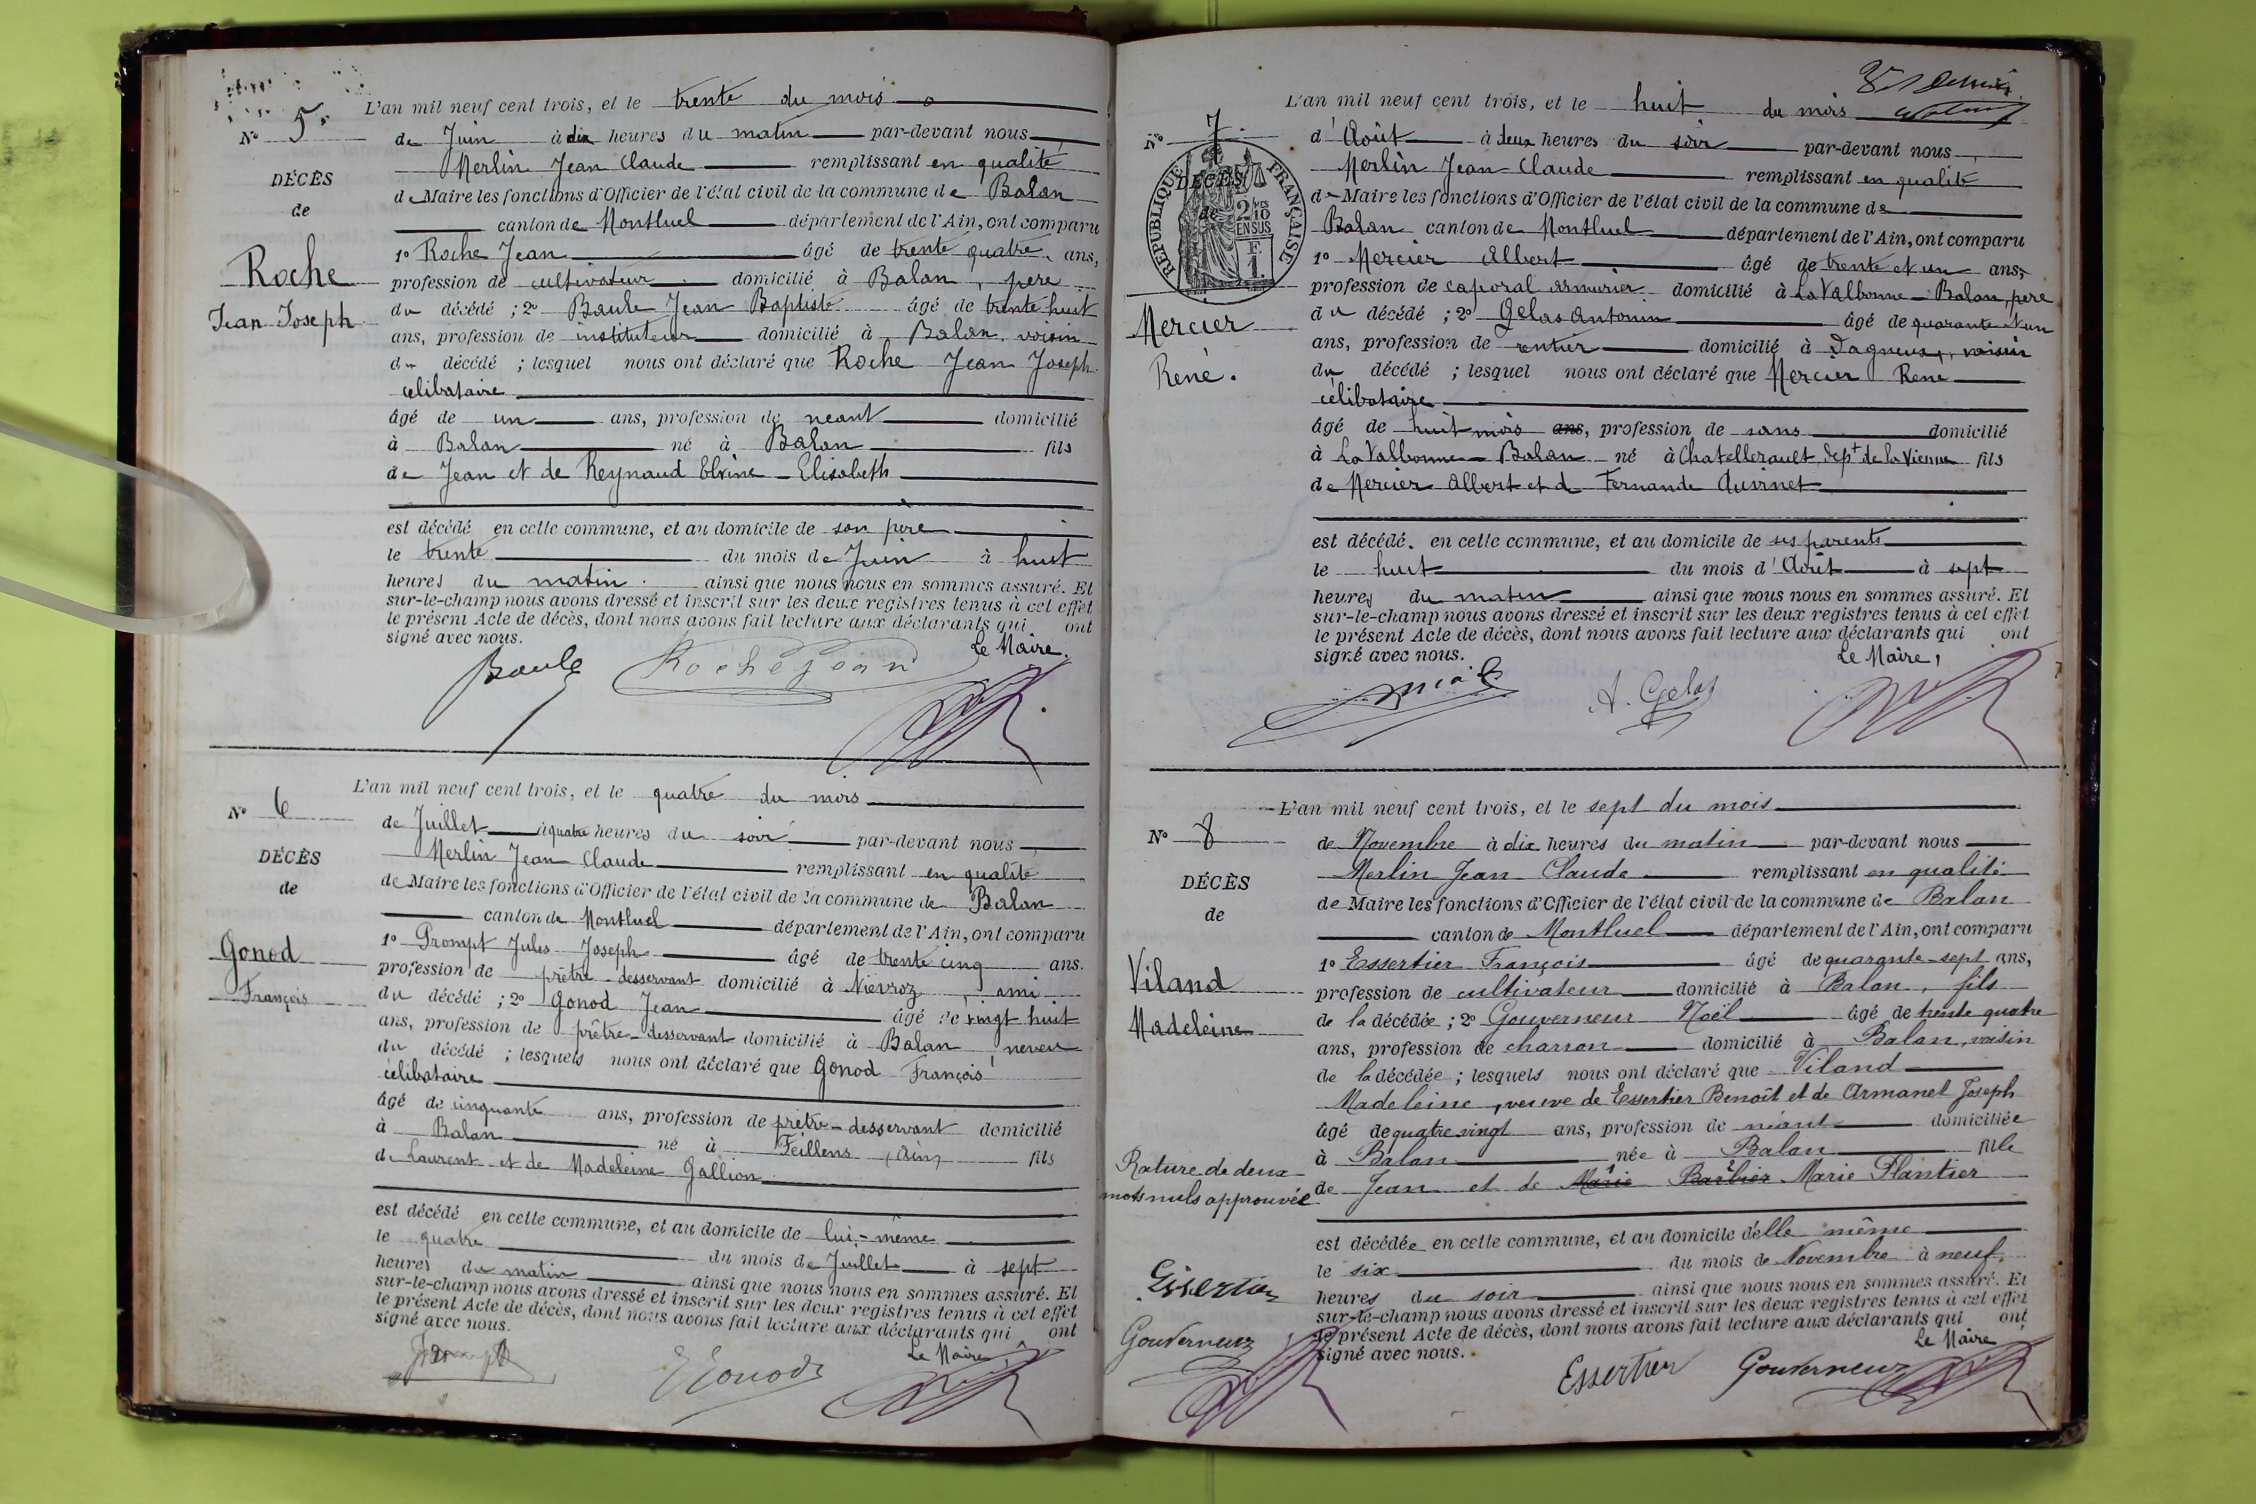 L'an mil neuf cent trois, et le trente du mois
N° 5
de Juin à dix heures du matin par-devant nous
Merlin Jean Claude remplissant en qualité
DÉCÈS
de Maire les fonctions d'Officier de l'état civil de la commune de Balan
de
canton de Montluel département de l'Ain, ont comparu
1° Roche Jean âgé de trente quatre ans,
Roche
profession de cultivateur domicilié à Balan, père
Jean Joseph
du décédé ; 2° Baule Jean Baptiste âgé de trente huit
ans, profession de instituteur domicilié à Balan, voisin
du décédé ; lesquel nous ont déclaré que Roche Jean Joseph
célibataire
âgé de un ans, profession de neant domicilié
à Balan né à Balan fils
de Jean et de Reynaud Elvine - Elisabeth
est décédé en cette commune, et au domicile de son père
le trente du mois de Juin à huit
heures du matin ainsi que nous nous en sommes assuré. Et
sur-le-champ nous avons dressé et inscrit sur les deux registres tenus à cet effet
le présent Acte de décès, dont nous avons fait lecture aux déclarants qui ont
signé avec nous.
Le Maire,
Baule Roche Jean
L'an mil neuf cent trois, et le quatre du mois
N° 6
de Juillet à quatre heures du soir par-devant nous
Merlin Jean Claude remplissant en qualité
DÉCÈS
de Maire les fonctions d'Officier de l'état civil de la commune de Balan
de
canton de Montluel département de l'Ain, ont comparu
1° Prompt Jules Joseph âgé de trente cinq ans.
Gonod
profession de prêtre desservant domicilié à Niévroz, ami
François
du décédé ; 2° Gonod Jean âgé de vingt huit
ans, profession de prêtre-desservant domicilié à Balan, neveu
du décédé ; lesquels nous ont déclaré que Gonod François
célibataire
âgé de cinquante ans, profession de prêtre-desservant domicilié
à Balan né à Feillens, (Ain) fils
de Laurent et de Madeleine Gallion
est décédé en cette commune, et au domicile de lui-même
le quatre du mois de Juillet à sept
heures du matin ainsi que nous nous en sommes assuré. Et
sur-le-champ nous avons dressé et inscrit sur les deux registres tenus à cet effet
le présent Acte de décès, dont nous avons fait lecture aux déclarants qui ont
signé avec nous.
Le Maire
Prompt Gonod
L'an mil neuf cent trois, et le huit du mois
N° 7
d'Août à deux heures du soir par-devant nous
Merlin Jean Claude remplissant en qualité
RÉPUBLIQUE FRANÇAISE
2/10 EN SUS
F. 1.
DÉCÈS
de Maire les fonctions d'Officier de l'état civil de la commune de
de
Balan canton de Montluel département de l'Ain, ont comparu
1° Mercier Albert âgé de trente et un ans,
profession de caporal armurier domicilié à La Valbonne - Balan, père
Mercier
du décédé ; 2° Gelas Antonin âgé de quarante et un
ans, profession de rentier domicilié à Dagneux, voisin
René.
du décédé ; lesquel nous ont déclaré que Mercier René
célibataire
âgé de huit mois ans, profession de sans domicilié
à La Valbonne - Balan né à Chatellerault, dept de la Vienne fils
de Mercier Albert et d Fernande Quirnet
est décédé. en cette commune, et au domicile de ses parents
le huit du mois d'Août à sept
heures du matin ainsi que nous nous en sommes assuré. Et
sur-le-champ nous avons dressé et inscrit sur les deux registres tenus à cet effet
le présent Acte de décès, dont nous avons fait lecture aux déclarants qui ont
signé avec nous.
Le Maire,
A. Gelas
L'an mil neuf cent trois, et le sept du mois
N° 8
de Novembre à dix heures du matin par-devant nous
Merlin Jean Claude remplissant en qualité
DÉCÈS
de Maire les fonctions d'Officier de l'état civil de la commune de Balan
de
canton de Montluel département de l'Ain, ont comparu
1° Essertier François âgé de quarante-sept ans,
Viland
profession de cultivateur domicilié à Balan, fils
Madeleine
de la décédée ; 2° Gouverneur Noël âgé de trente quatre
ans, profession de charron domicilié à Balan, voisin
de la décédée ; lesquels nous ont déclaré que Viland
Madeleine, veuve de Essertier Benoît et de Armanet Joseph
âgé de quatre vingt ans, profession de néant domiciliée
à Balan née à Balan fille
Rature de deux
mots nuls approuvée
de Jean et de Marie Barbier Marie Plantier
est décédée en cette commune, et au domicile d'elle même
le six du mois de Novembre à neuf
heures du soir ainsi que nous nous en sommes assuré. Et
sur-le-champ nous avons dressé et inscrit sur les deux registres tenus à cet effet
le présent Acte de décès, dont nous avons fait lecture aux déclarants qui ont
signé avec nous.
Le Maire
Essertier
Gouverneur
Essertier Gouverneur